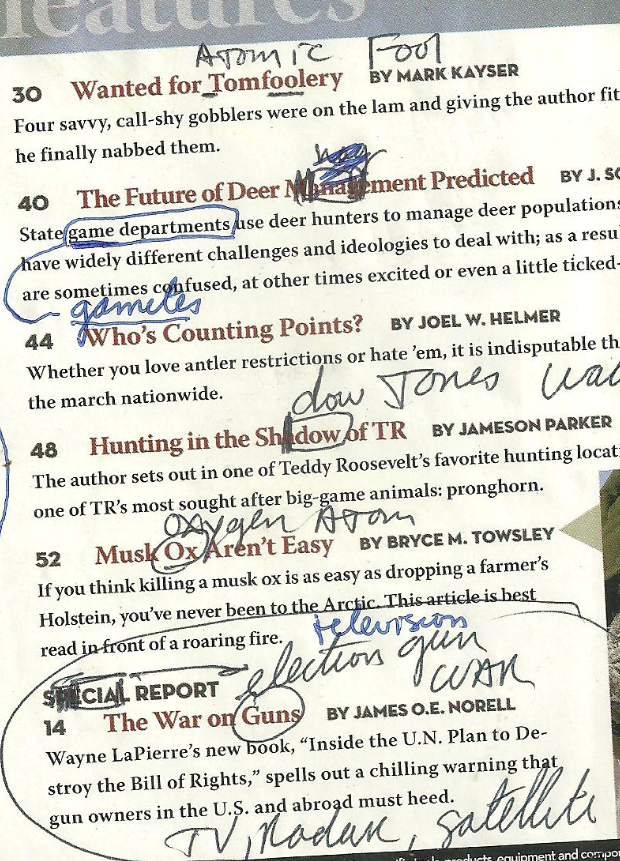 features
Atomic Fool
30 Wanted for Tomfoolery BY MARK KAYSER
Four savvy, call-shy gobblers were on the lam and giving the author fit
he finally nabbed them.
40 The Future of Deer Management Predicted BY J. SC
State game departments use deer hunters to manage deer populations
have widely different challenges and ideologies to deal with; as a resu
are sometimes confused, at other times excited or even a little ticked-
gametes
44 Who's Counting Points? BY JOEL W. HELMER
Whether you love antler restrictions or hate 'em, it is indisputable th
the march nationwide.
dow Jones
48 Hunting in the Shadow of TR BY JAMESON PARKER
The author sets out in one of Teddy Roosevelt's favorite hunting locati
one of TR's most sought after big-game animals: pronghorn.
Oxygen Atom
52 Musk Ox Aren't Easy BY BRYCE M. TOWSLEY
If you think killing a musk ox is as easy as dropping a farmer's
Holstein, you've never been to the Arctic. This article is best
read in front of a roaring fire.
television
election gun
WAR
SPECIAL REPORT
14 The War on Guns BY JAMES O.E. NORELL
Wayne LaPierre's new book, “Inside the U.N. Plan to De-
stroy the Bill of Rights,” spells out a chilling warning that
gun owners in the U.S. and abroad must heed.
TV, Radar, satellite
products, equipment and compo